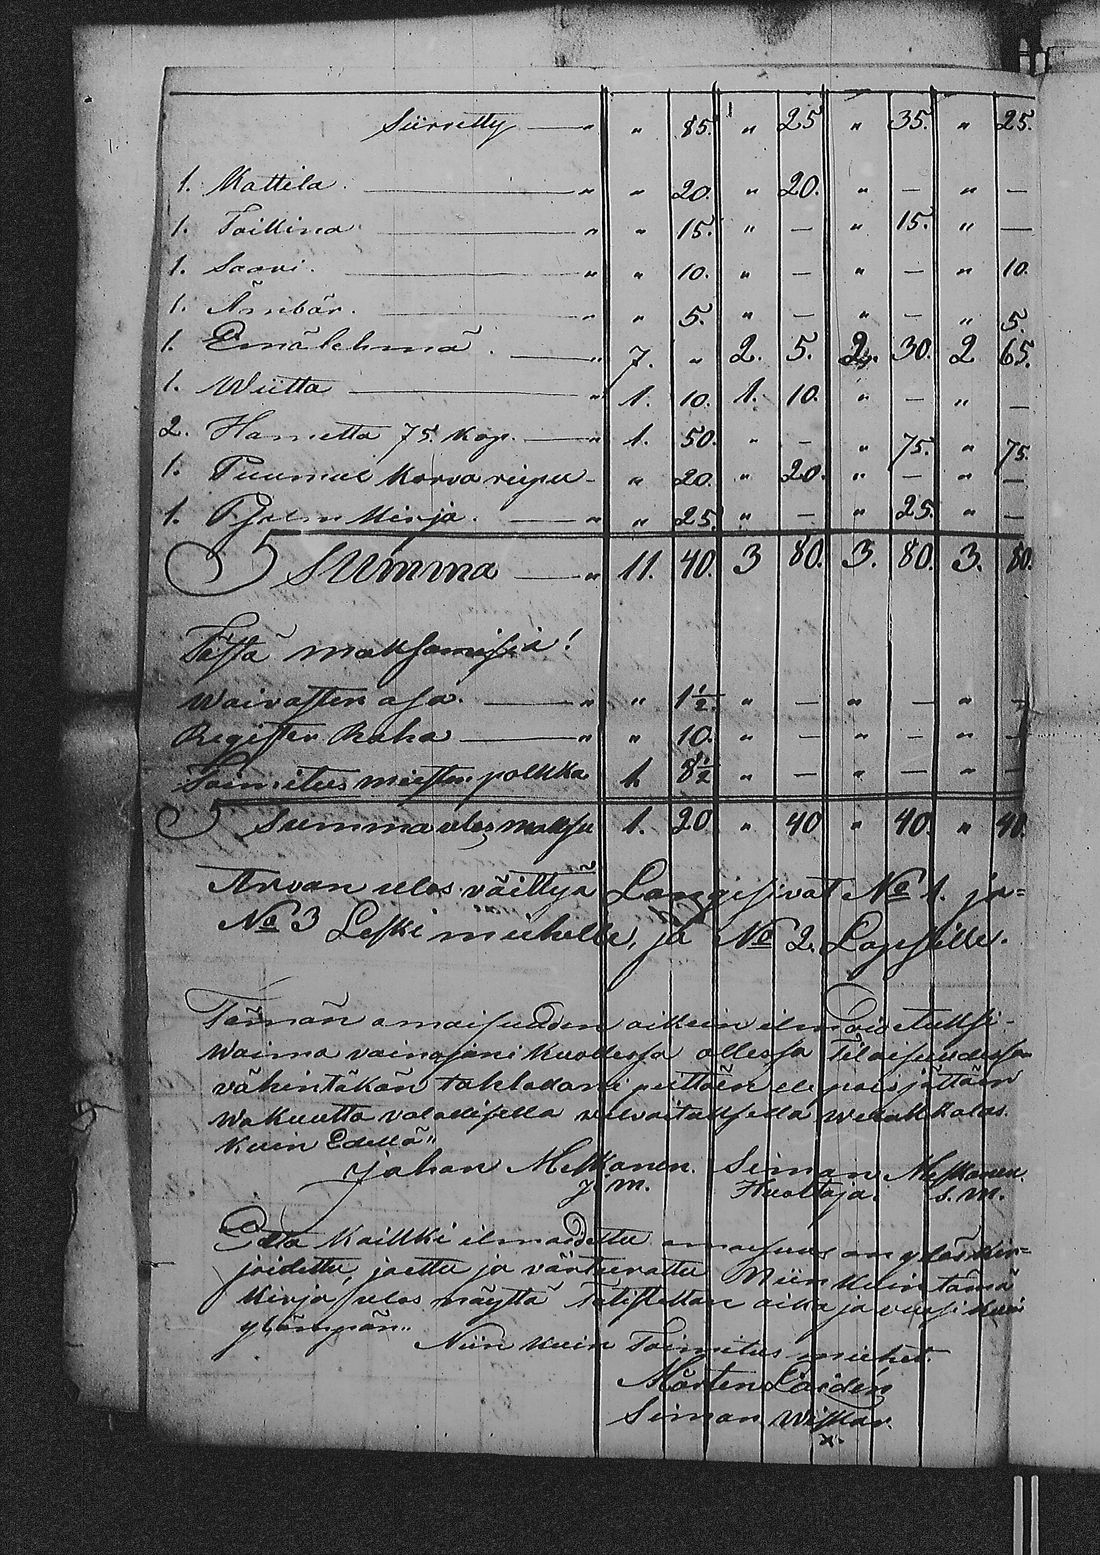 Siirretty — " " 85. " 25 " 35. " 25.
1. Kattila. — " " 20. " 20. " — " —
1. Taikina — " " 15. " — " 15. " —
1. Saavi. — " " 10. " — " — " 10.
1. Ämbär. — " " 5. " — " — " 5.
1. Emälehmä. — " 7. " 2. 5. 2. 30. 2 65.
1. Wiitta — " 1. 10. 1. 10. " — " —
2. Hametta 75. Kop. — " 1. 50. " — " 75. " 75.
1. Puumal Korva reipu - " 20. " 20. " — " —
1. Psalm Kirja. — " " 25. " — " 25. " —
Summa — " 11. 40. 3 80. 3. 80. 3. 80.
Tästä maksamisia!
Waivasten osa. — " " 1½. " — " — " —
Register Raha — " " 10. " — " — " —
Toimitus miesten palkka 1. 8½ " — " — " —
Summa ulos maksu 1. 20 " 40 " 40. " 40.
Arvan ulos vättyä Langesivat No 1. ja=
No 3 Leski miehelle, ja No 2. Lapsille.
Tämän omaisudden oikein ilmoitetuksi
Wainna vainajani Kuollessa ollessa tilaisuudessa
vähintäkän tahtodani peittäen eli pois jättäen
Wakuutta valallisella velvoituksella
Kuin Edellä"
Johan Meskanen. Simon Meskanen.
J. M. Huoltaja. S. M.
Että Kaikki ilmoidettu omaisuus on ylöskir=
joidettu, jaettu ja värteerattu Niin Kuin tämä
Kirja ulos näyttä Totistettan aika ja vuosi Kuin
ylämpän"
Niin Kuin Toimitus miehet.
Mårten Laidén
Simon Wiskar.
x.